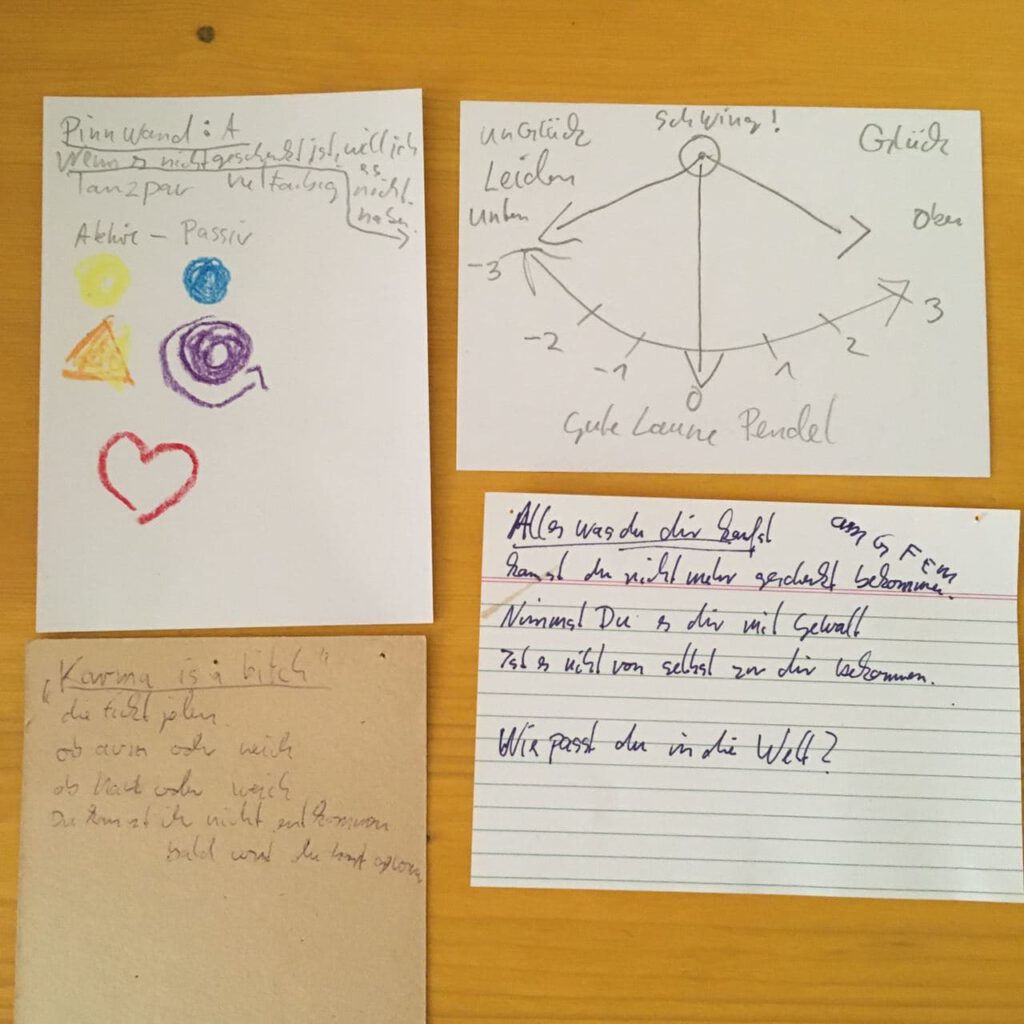 Pinnwand: A
Wenn es nicht geschenkt ist, will ich
es nicht
haben
Tanzpaar vielfarbig
Aktiv - Passiv
Schwing!
unGlück
Glück
Leiden
unten
Oben
-3
3
-2
2
-1
1
0
Gute Laune Pendel
Alles was du dir kaufst
kannst du nicht mehr geschenkt bekommen.
Nimmst Du es dir mit Gewalt
Ist es nicht von selbst zu dir bekommen.
Wie passt du in die Welt?
„Karma is a bitch"
die fickt jeden
ob arm oder reich
ob hart oder weich
Du kannst ihr nicht entkommen
bald wirst du hart